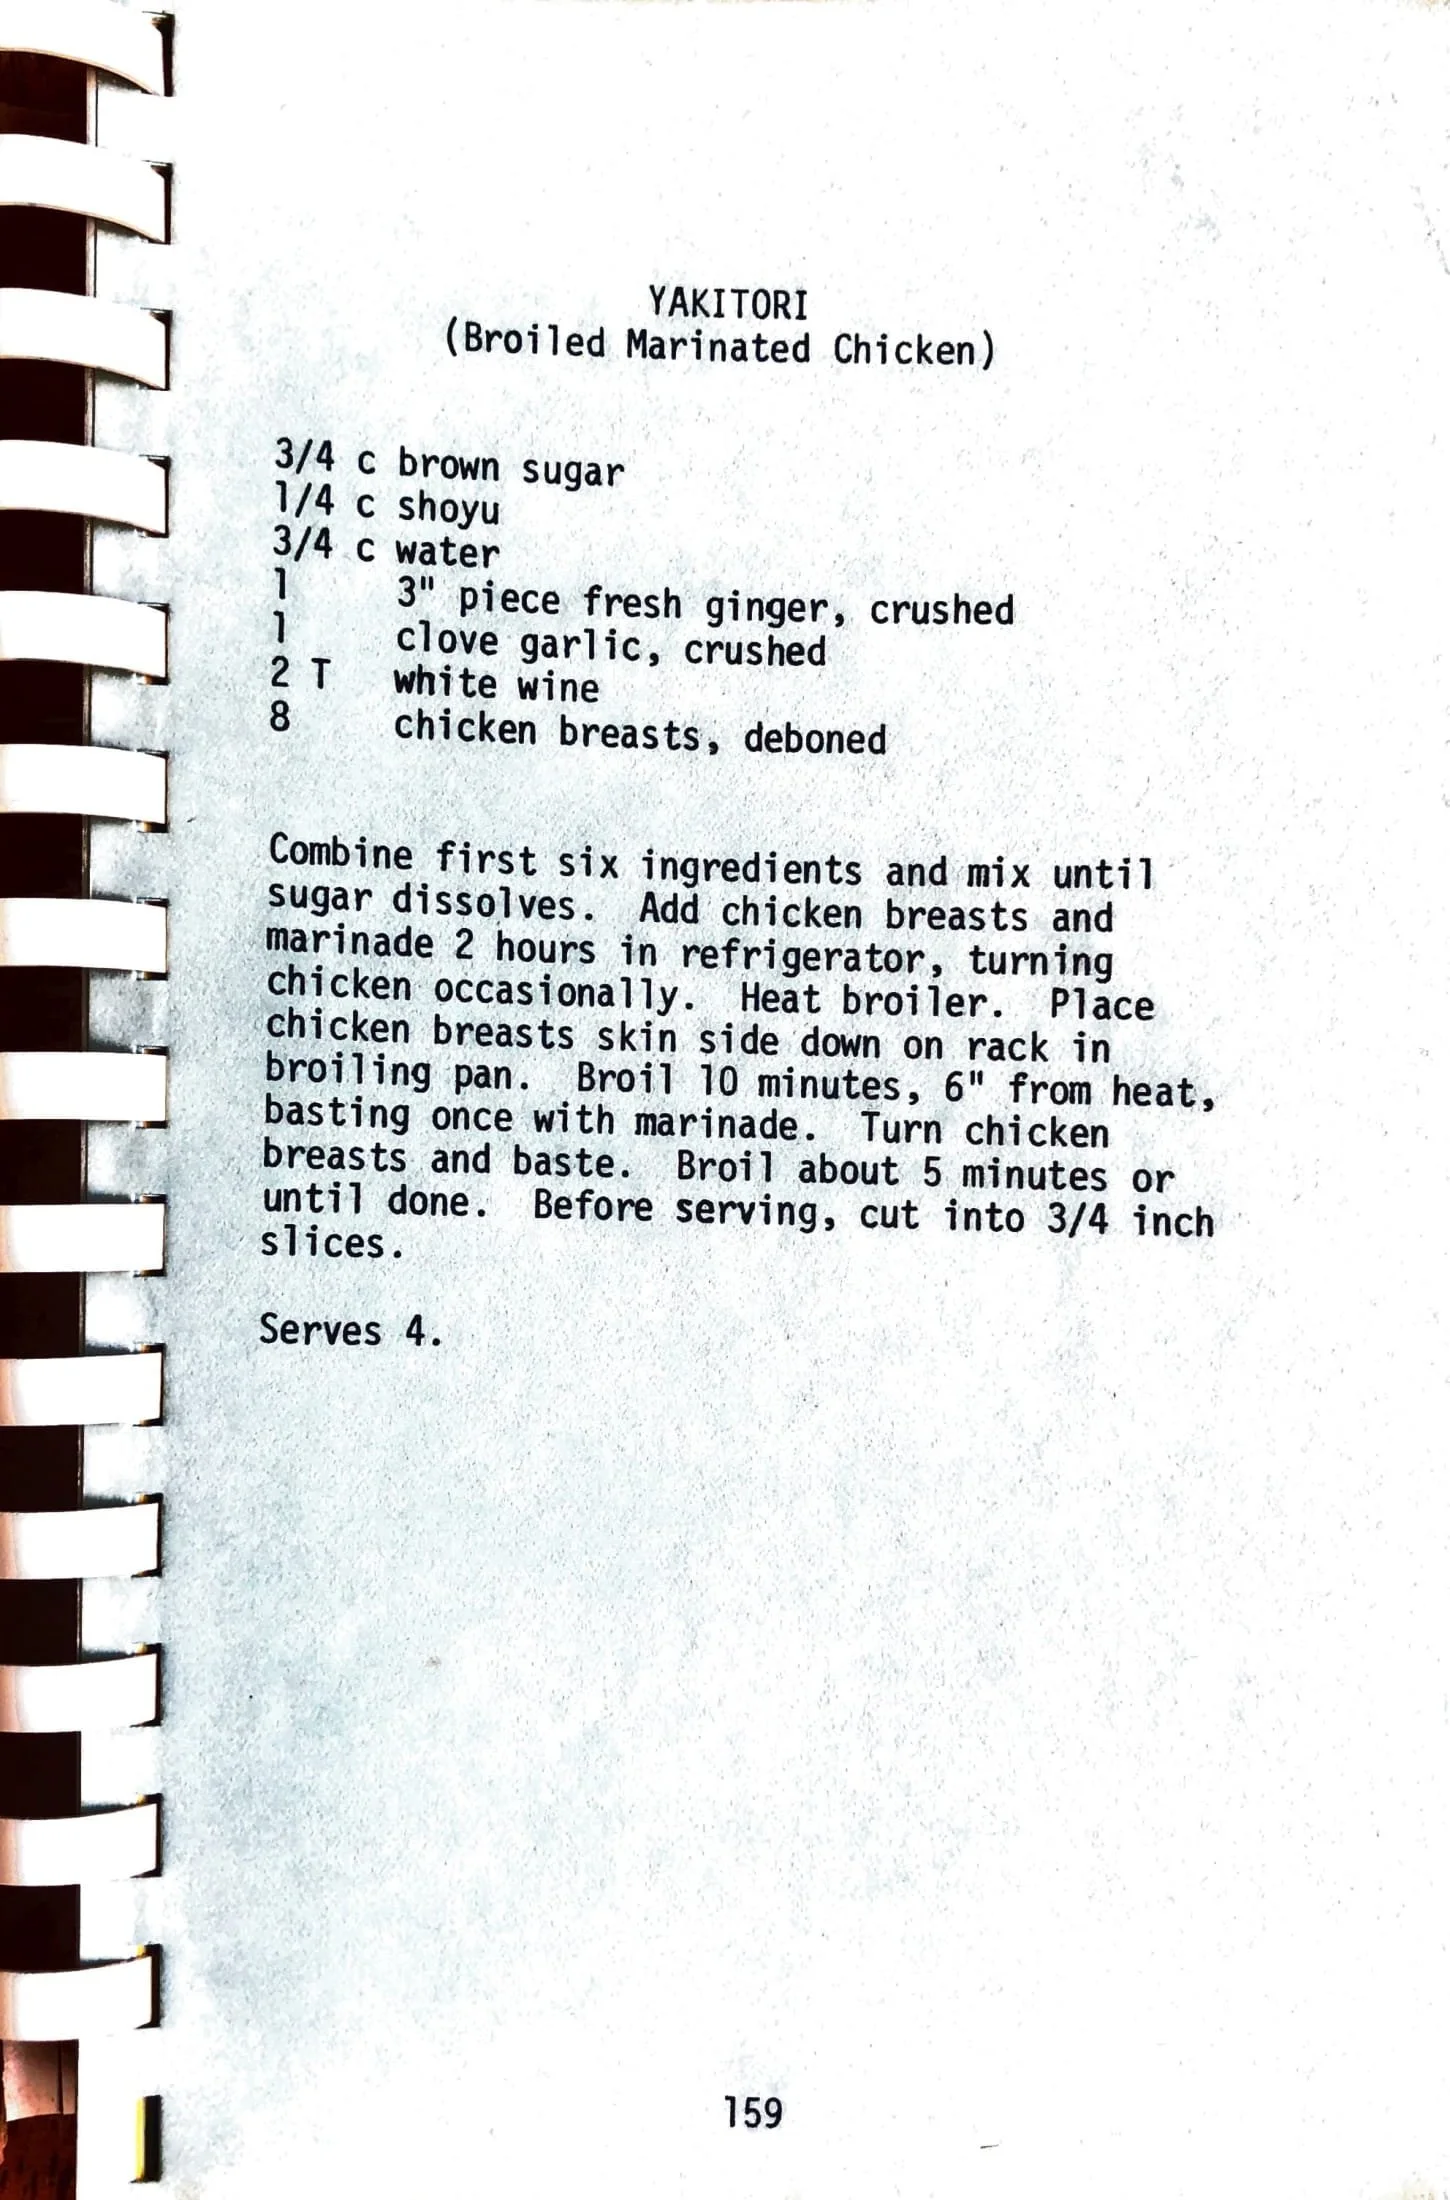 YAKITORI
(Broiled Marinated Chicken)
3/4 c brown sugar
1/4 c shoyu
3/4 c water
1 3" piece fresh ginger, crushed
1 clove garlic, crushed
2 T white wine
8 chicken breasts, deboned
Combine first six ingredients and mix until
sugar dissolves. Add chicken breasts and
marinade 2 hours in refrigerator, turning
chicken occasionally. Heat broiler. Place
chicken breasts skin side down on rack in
broiling pan. Broil 10 minutes, 6" from heat,
basting once with marinade. Turn chicken
breasts and baste. Broil about 5 minutes or
until done. Before serving, cut into 3/4 inch
slices.
Serves 4.
159